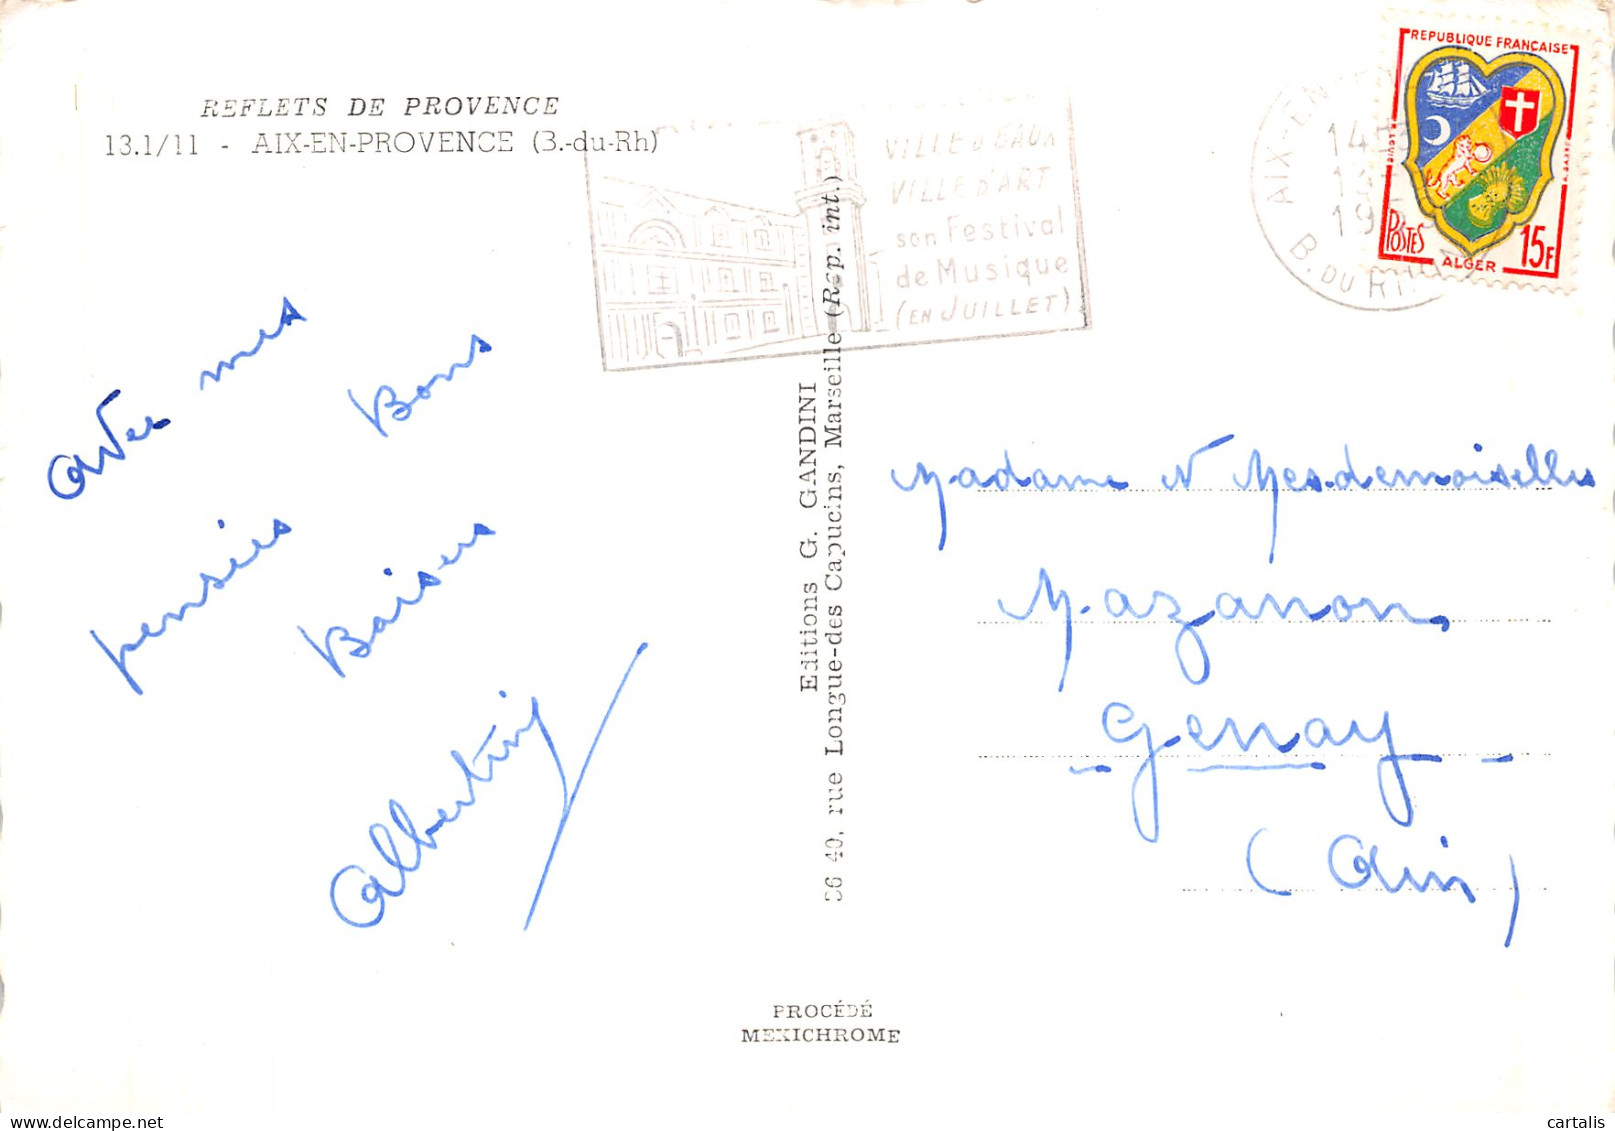 REFLETS DE PROVENCE
13.1/11 - AIX-EN-PROVENCE (B.-du-Rh)
avec mes
Bons
pensées
Baisers
Albertine
Editions G. GANDINI
36-40, rue Longue-des Capucins, Marseille (Rep. int.)
PROCÉDÉ
MEXICHROME
VILLE D'EAUX
VILLE D'ART
son Festival
de Musique
(EN JUILLET)
AIX-EN
B. DU RH
REPUBLIQUE FRANÇAISE
POSTES
ALGER
15F
Madame et Mesdemoiselles
Mazanon
Genay
(Ain)
delcampe.net
cartalis